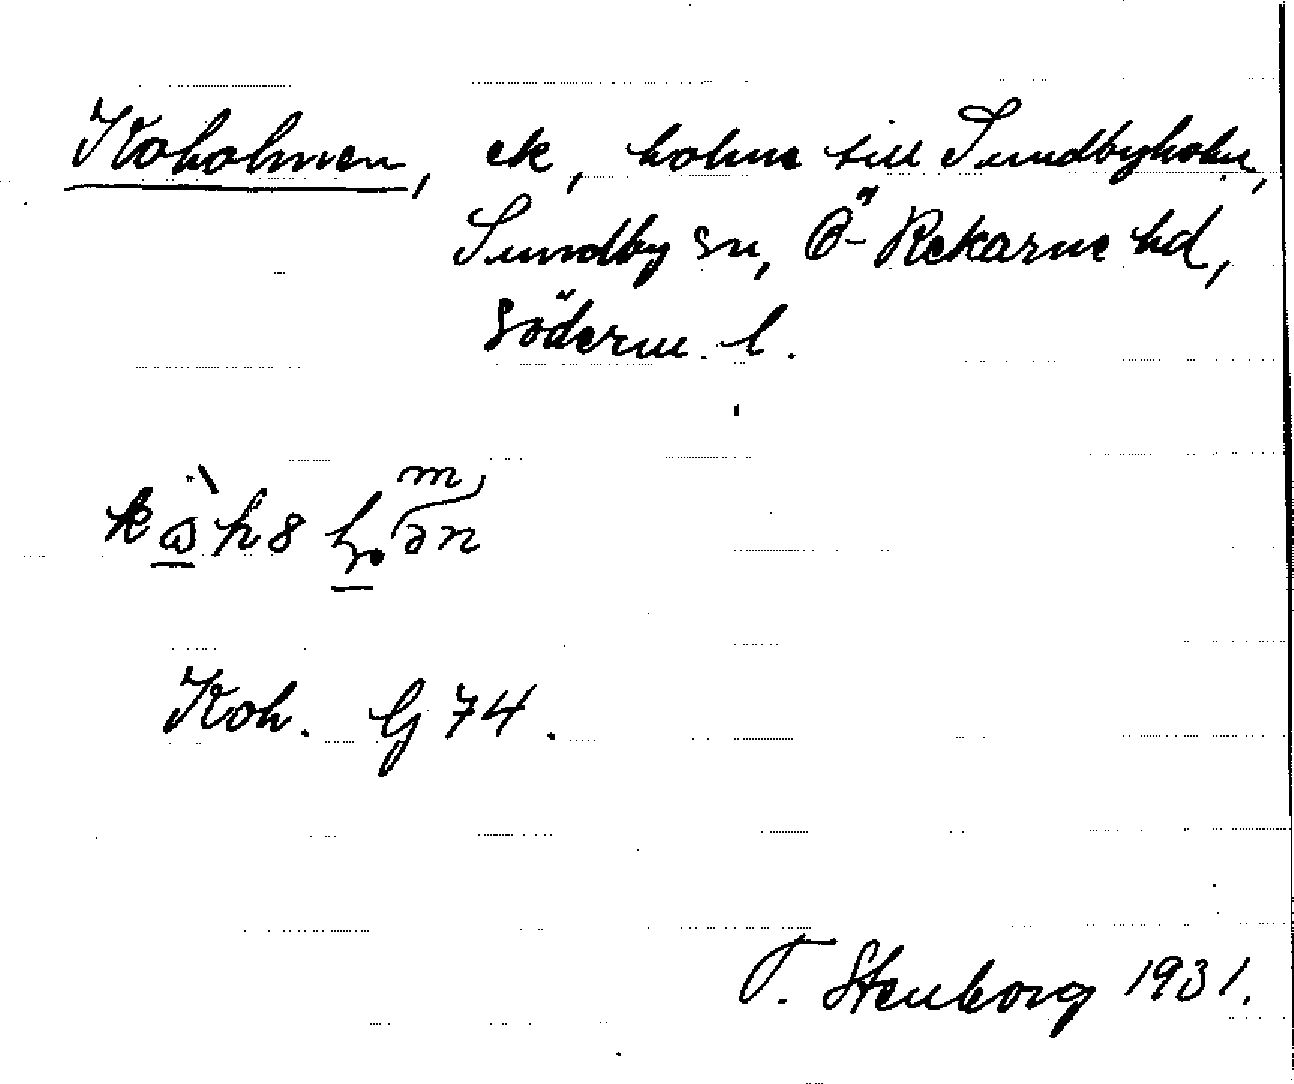 Koholmen, ek, holme till Sundbyholm,
Sundby sn, Ö-Rekarne hd,
Söderm. l.
Koh. G 74.
T. Stenborg 1931.